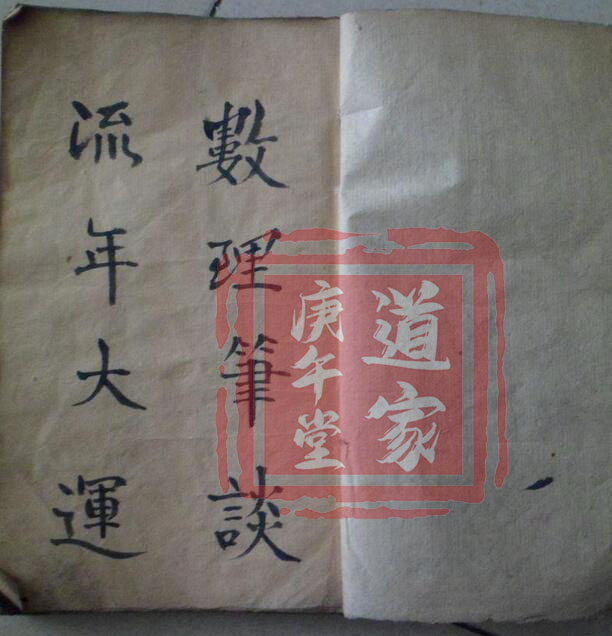 數理筆談
流年大運
道家
庚午堂